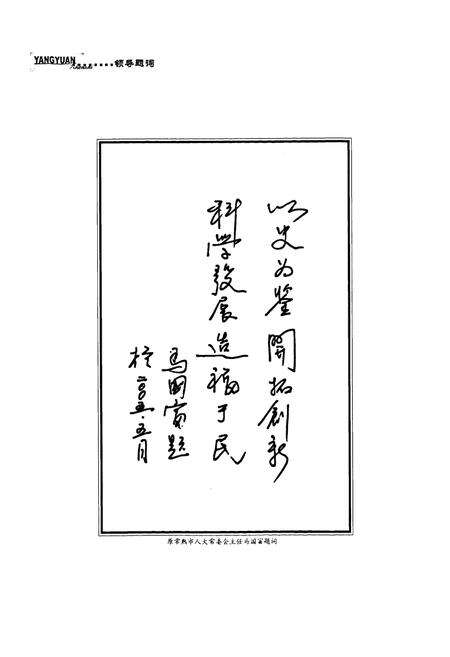 YANGYUAN
领导题词
以史为鉴開拓创新
科学發展造福于民
马国富题
于二〇〇五·五月
原常熟市人大常委会主任马国富题词